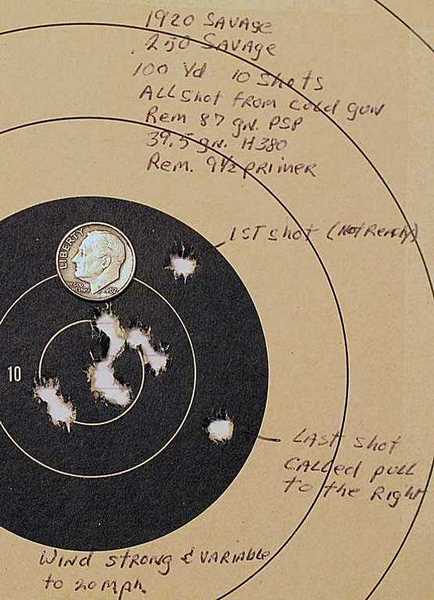 1920 Savage
.250 Savage
100 Yd 10 Shots
All shot from cold gun
Rem 87 gn. PSP
39.5 gn. H380
Rem. 9½ primer
1st shot (Not Ready)
LIBERTY
10
Last shot
called pull
to the right
Wind strong & variable
to 20 mph.